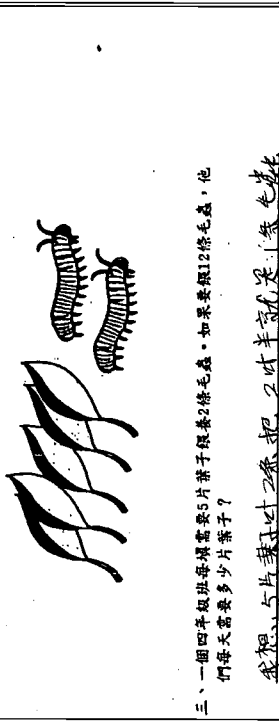 三、一個四年級班每塡需要5片葉子餵養2條毛蟲。如果要餵12條毛蟲，他
們每天需要多少片葉子？
我想：5片葉子吃2條，把2吃半就是1條毛蟲